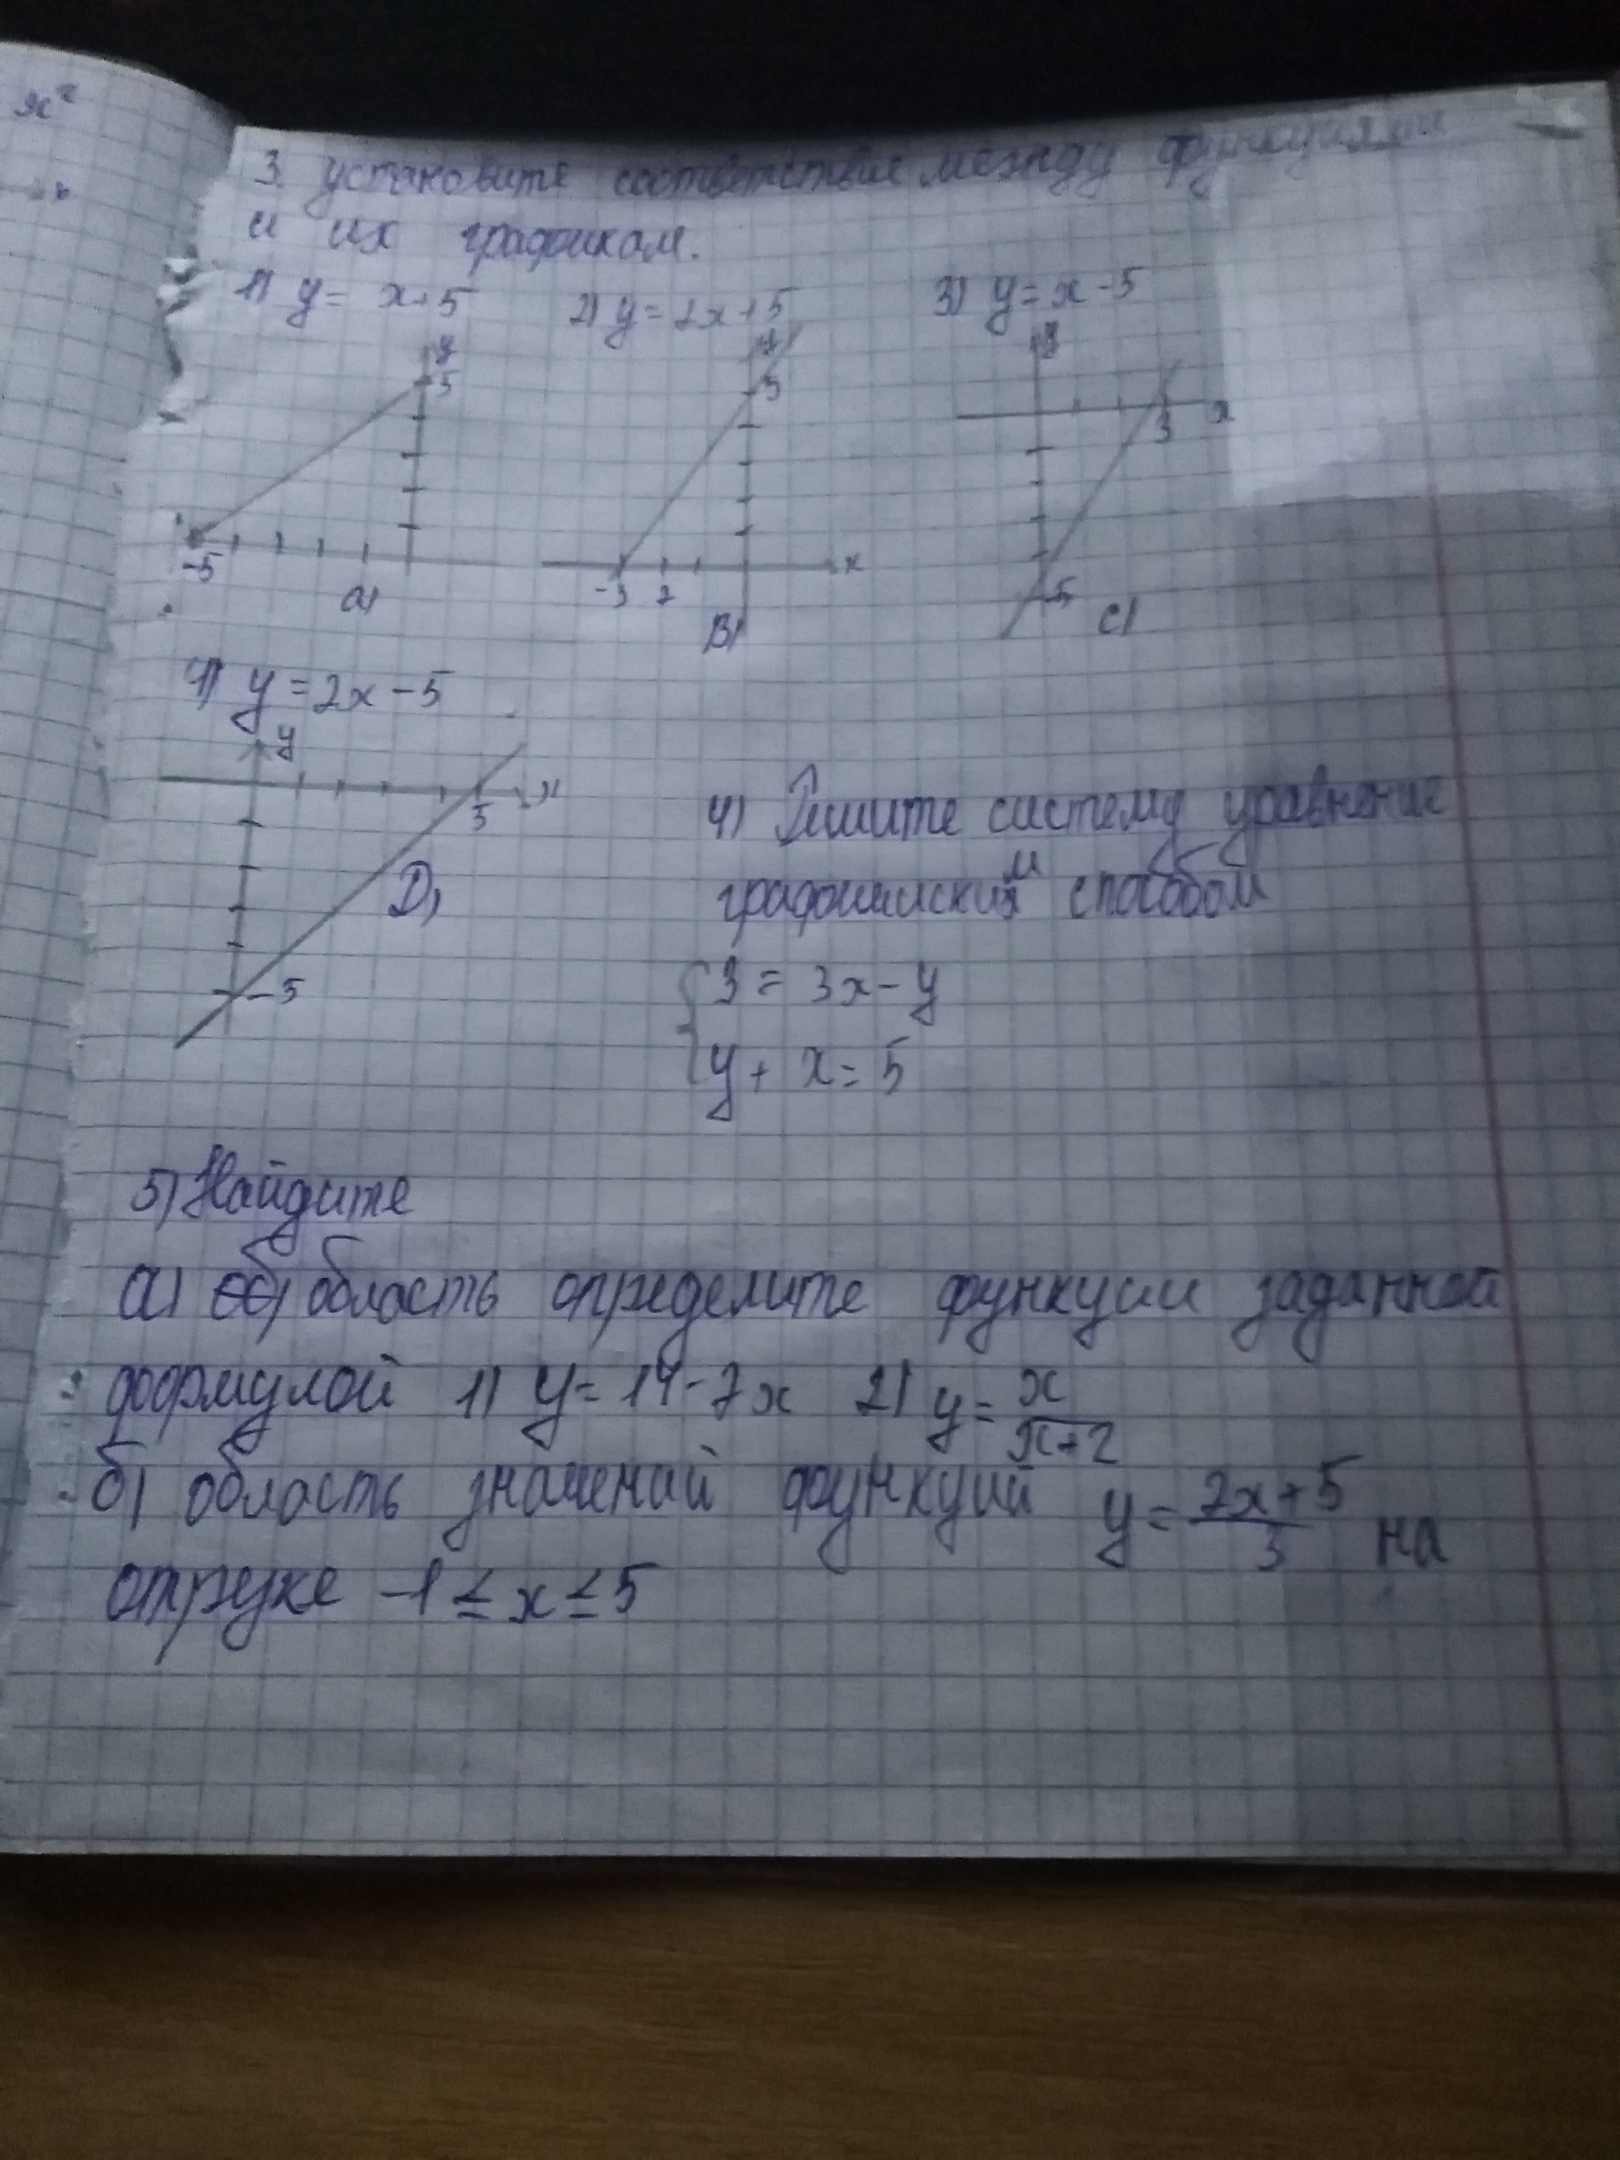 x²
3. установите соответствие между функциями
и их графикам.
1) y = x+5   2) y = 2x+5   3) y = x-5
y
5
-5
a)
y
5
x
-3 2
B)
y
x
3
-5
C)
4) y = 2x - 5
y
x
5
D)
-5
4) Решите систему уравнение
графический м способом
3 = 3x - y
y + x = 5
5) Найдите
a) об) область определите функции заданной
формулой 1) y = 14-7x   2) y = x/(x+2)
б) область значений функций y = (2x+5)/3 на
отрезке -1 ≤ x ≤ 5